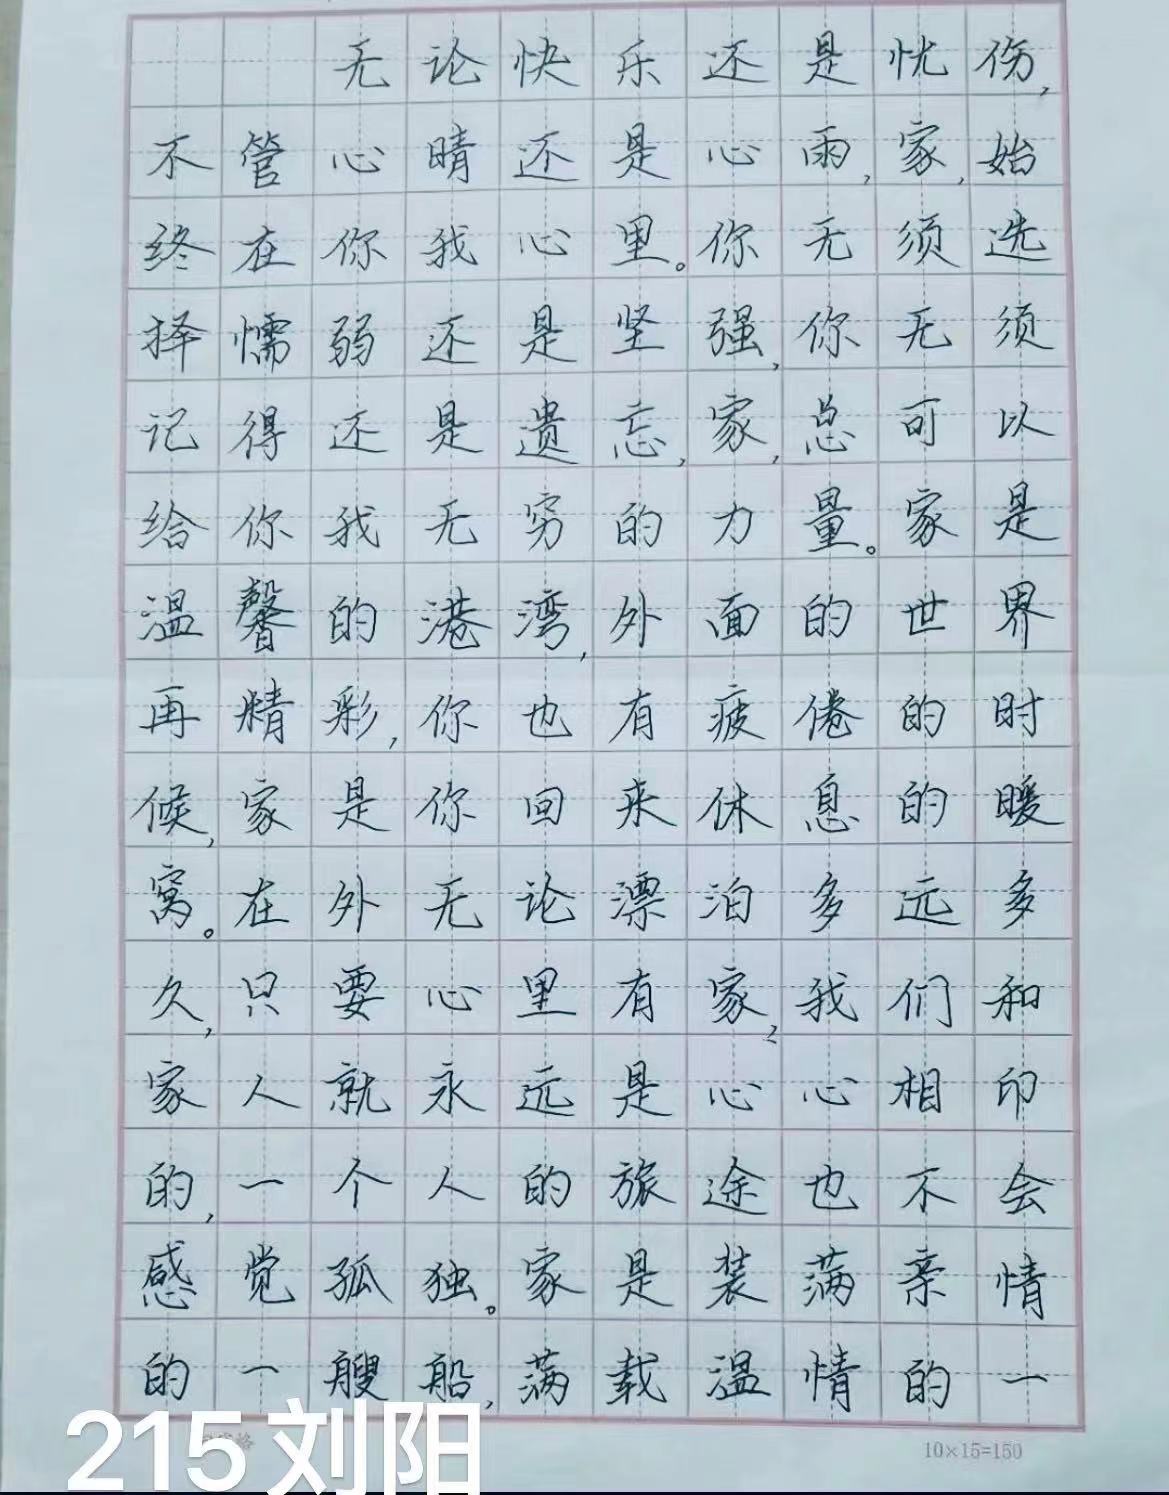 无论快乐还是忧伤,
不管心晴还是心雨,家,始
终在你我心里。你无须选
择懦弱还是坚强,你无须
记得还是遗忘,家,总可以
给你我无穷的力量。家是
温馨的港湾,外面的世界
再精彩,你也有疲倦的时
候,家是你回来休息的暖
窝。在外无论漂泊多远多
久,只要心里有家,我们和
家人就永远是心心相印
的,一个人的旅途也不会
感觉孤独。家是装满亲情
的一艘船,满载温情的一
215刘阳
10×15=150